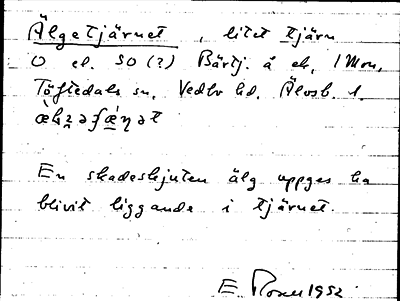 Älgetjärnet, litet tjärn
O el. SO (?) Bärtj. å ek. 1 Mon,
Töftedals sn, Vedbo hd, Älvsb. l.
En skadeskjuten älg uppges ha
blivit liggande i tjärnet.
E. 1952